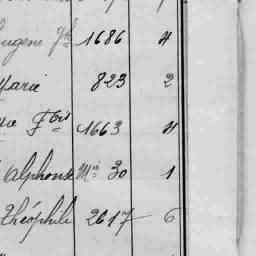 Eugène Js 1686 4
Marie 823 2
Fçois 1663 4
Alphonse Mn 30 1
Théophile 2617 6